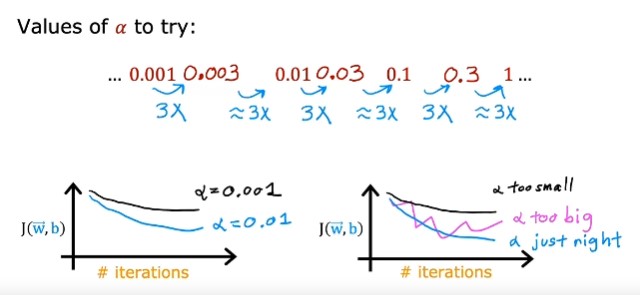 Values of α to try:
... 0.001 0.003 0.01 0.03 0.1 0.3 1 ...
3X ≈3X 3X ≈3X 3X ≈3X
α=0.001
α=0.01
J(w⃗,b)
# iterations
α too small
α too big
α just right
J(w⃗,b)
# iterations